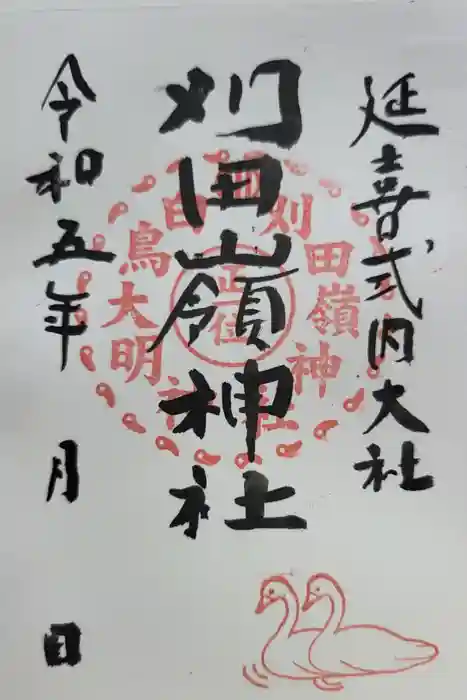 延喜式内大社
刈田嶺神社
令和五年 月 日
刈田嶺神社
白鳥大明
正一位